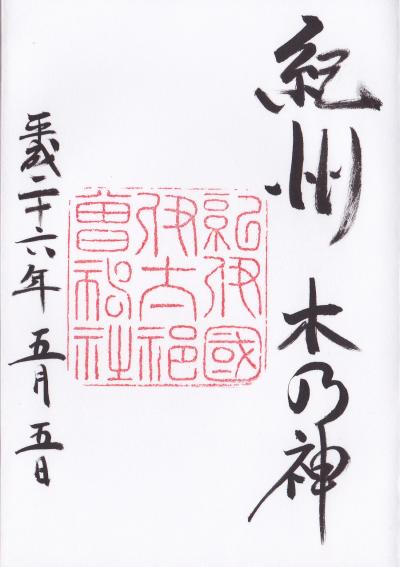 紀州 木乃神
紀伊國
伊太祁
曽神社
平成二十六年 五月五日